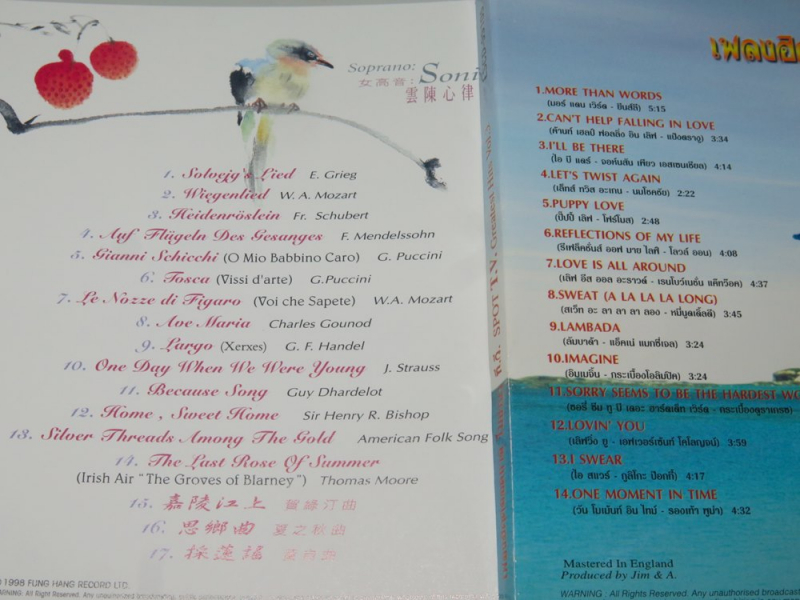 Soprano: Soni
女高音: 雲陳心律
1. Solvejg's Lied E. Grieg
2. Wiegenlied W. A. Mozart
3. Heidenröslein Fr. Schubert
4. Auf Flügeln Des Gesanges F. Mendelssohn
5. Gianni Schicchi (O Mio Babbino Caro) G. Puccini
6. Tosca (Vissi d'arte) G.Puccini
7. Le Nozze di Figaro (Voi che Sapete) W.A. Mozart
8. Ave Maria Charles Gounod
9. Largo (Xerxes) G. F. Handel
10. One Day When We Were Young J. Strauss
11. Because Song Guy Dhardelot
12. Home , Sweet Home Sir Henry R. Bishop
13. Silver Threads Among The Gold American Folk Song
14. The Last Rose Of Summer
(Irish Air "The Groves of Blarney") Thomas Moore
15. 嘉陵江上 賀綠汀曲
16. 思鄉曲 夏之秋曲
17. 採蓮謠
©1998 FUNG HANG RECORD LTD.
WARNING: All Rights Reserved. Any unauthorised broadcasting,
SPOT T.V. Greatest Hits Vol.2
เพลงฮิต
1.MORE THAN WORDS
(มอร์ แดน เวิร์ด - ยีนส์ลี) 5:15
2.CAN'T HELP FALLING IN LOVE
(ค้านท์ เฮลป์ ฟอลลิ่ง อิน เลิฟ - แป้งตรางู) 3:34
3.I'LL BE THERE
(ไอ บี แดร์ - จอห์นสัน เพียว เอสเซนเชียล) 4:14
4.LET'S TWIST AGAIN
(เล็ทส์ ทวิส อะเกน - นมโชคชัย) 2:22
5.PUPPY LOVE
(ปั๊ปปี้ เลิฟ - โฟร์โมส) 2:48
6.REFLECTIONS OF MY LIFE
(รีเฟล็คชั่นส์ ออฟ มาย ไลฟ์ - โลวส์ ออน) 4:08
7.LOVE IS ALL AROUND
(เลิฟ อีส ออล อะราวด์ - เรนโบว์เนชั่น แค๊ทว๊อค) 4:37
8.SWEAT (A LA LA LA LONG)
(สเว็ท อะ ลา ลา ลา ลอง - หมี่บูดเดิ้ลลี่) 3:45
9.LAMBADA
(ลัมบาด้า - แอ๊คเน่ แมกซี่เจล) 3:24
10.IMAGINE
(อิมเมจิ้น - กระเบื้องโอลิมปิค) 3:24
11.SORRY SEEMS TO BE THE HARDEST WO
(ซอรี่ ซีม ทู บี เดอะ ฮาร์ดเด็ท เวิร์ด - กระเบื้องดูราเกรซ)
12.LOVIN' YOU
(เลิฟวิ่ง ยู - เอฟเวอร์เซ้นท์ โคโลญจน์) 3:59
13.I SWEAR
(ไอ สแวร์ - กูลิโกะ ป๊อกกี้) 4:17
14.ONE MOMENT IN TIME
(วัน โมเม้นท์ อิน ไทม์ - รองเท้า พูม่า) 4:32
Mastered In England
Produced by Jim & A.
WARNING : All Rights Reserved. Any unauthorised broadcast